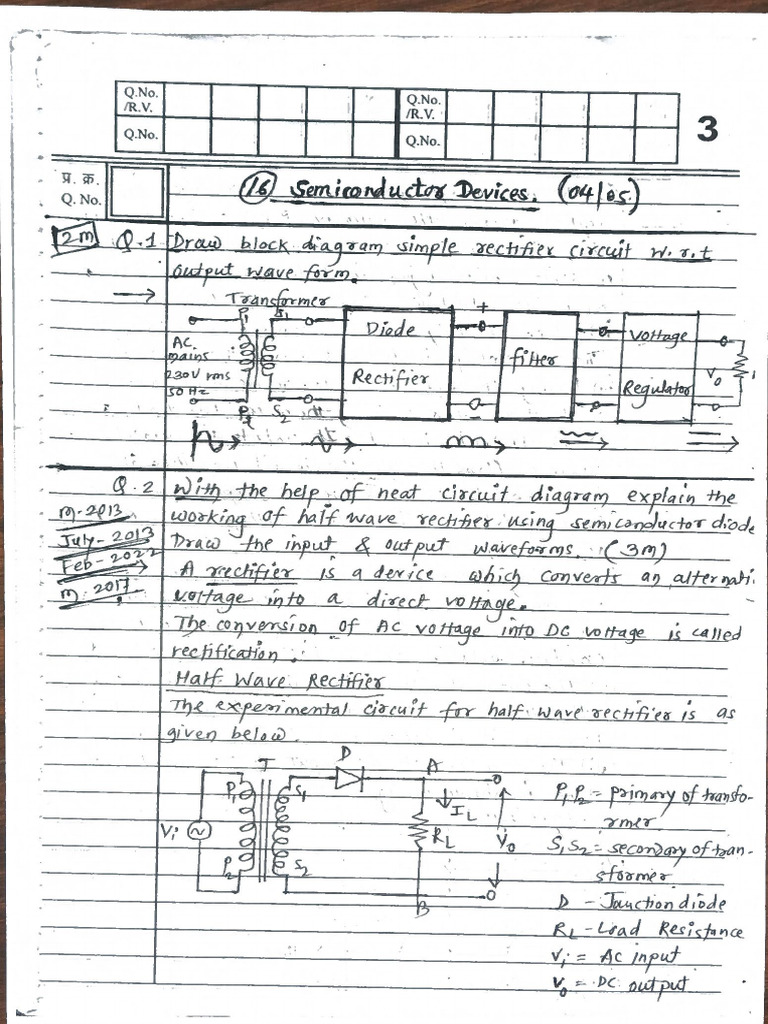 Q.No. /R.V.
Q.No. /R.V.
Q.No.
Q.No.
3
प्र. क्र.
Q. No.
16 Semiconductor Devices. (04/05)
2m Q.1 Draw block diagram simple rectifier circuit w.r.t
output wave form.
Transformer
P1 S1 +
AC mains 230V rms 50 Hz
Diode Rectifier
filter
Voltage Regulator
Vo
P2 S2 -
Q.2 With the help of neat circuit diagram explain the
m-2013 working of half wave rectifier using semiconductor diode
July-2013 Draw the input & output waveforms. (3m)
Feb-2022 A rectifier is a device which converts an alternati
m.2017 voltage into a direct voltage.
The conversion of AC voltage into DC voltage is called
rectification.
Half Wave Rectifier
The experimental circuit for half wave rectifier is as
given below.
T D A
P1 S1 IL
Vi RL Vo
P2 S2
B
P1P2 = primary of transfo-
rmer
S1S2 = secondary of tran-
sformer
D - Junction diode
RL - Load Resistance
Vi = AC input
Vo = DC output